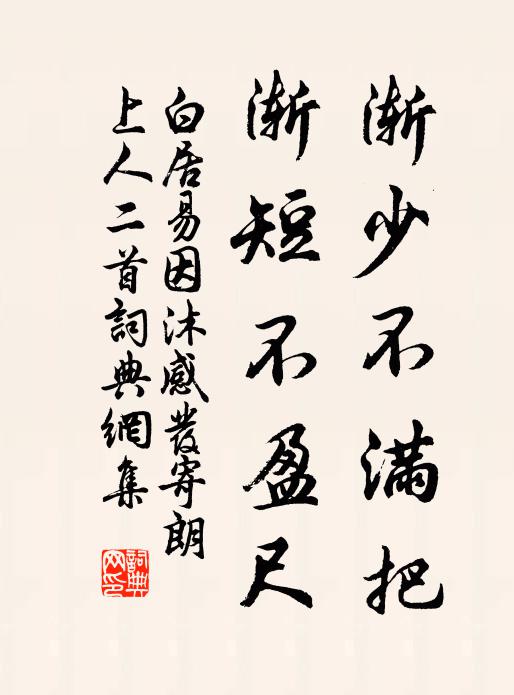 渐少不满把
渐短不盈尺
白居易因沐感发寄朗
上人二首詞典網集
詞典
网印